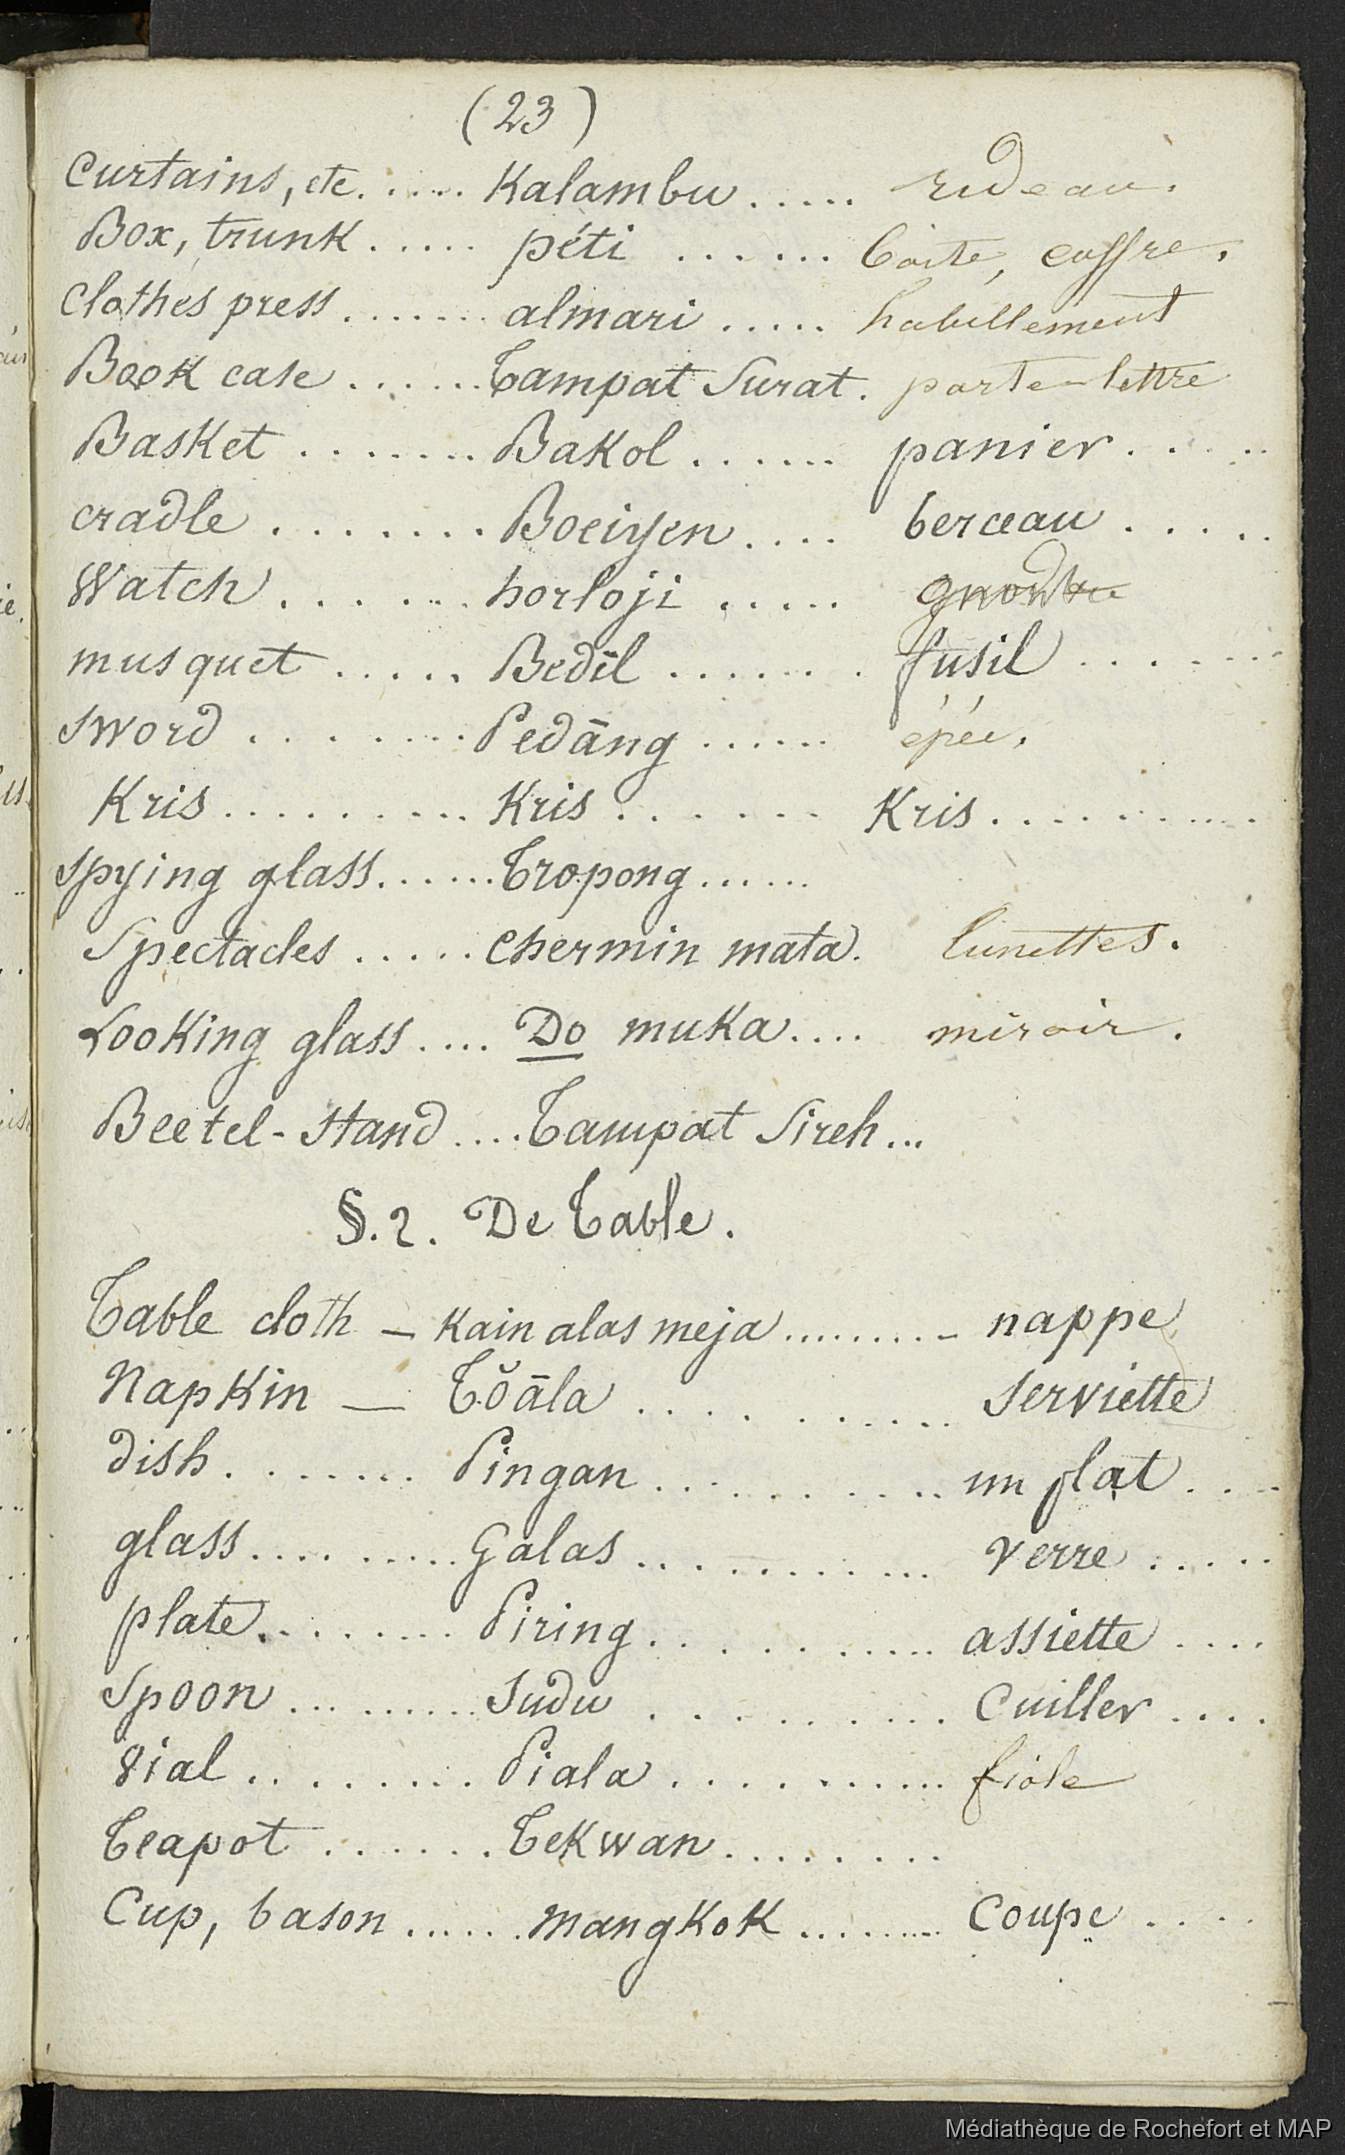 (23)
Curtains, etc. ..... Kalambu ..... rideau.
Box, trunk ..... péti ....... boite, coffre.
Clothes press ....... almari ..... habillement
Book case ...... Tampat Surat. porte-lettre
Basket ........ Bakol ...... panier .....
cradle ........ Boeiyen .... berceau .....
Watch ....... horloji .....
musquet ..... Bedīl ....... fusil ......
Sword ........ Pedāng ...... épée.
Kris .......... Kris ...... Kris ..........
Spying glass ...... Tropong ......
Spectacles ..... Chermin mata. lunettes.
Looking glass .... Do muka .... miroir.
Beetel-Stand .... Tampat Sireh ...
§. 2. De Table.
Table cloth — Kain alas meja .......... nappe
Napkin — Tŏāla .......... serviette
dish ........ Pingan .......... un plat ....
glass ......... Galas .......... verre .....
plate ........ Piring .......... assiette ....
Spoon ......... Sudu .......... Cuiller ....
Vial ......... Piala .......... fiole
Teapot ....... Tekwan ........
Cup, bason ...... mangkok ........ Coupe ....
Médiathèque de Rochefort et MAP